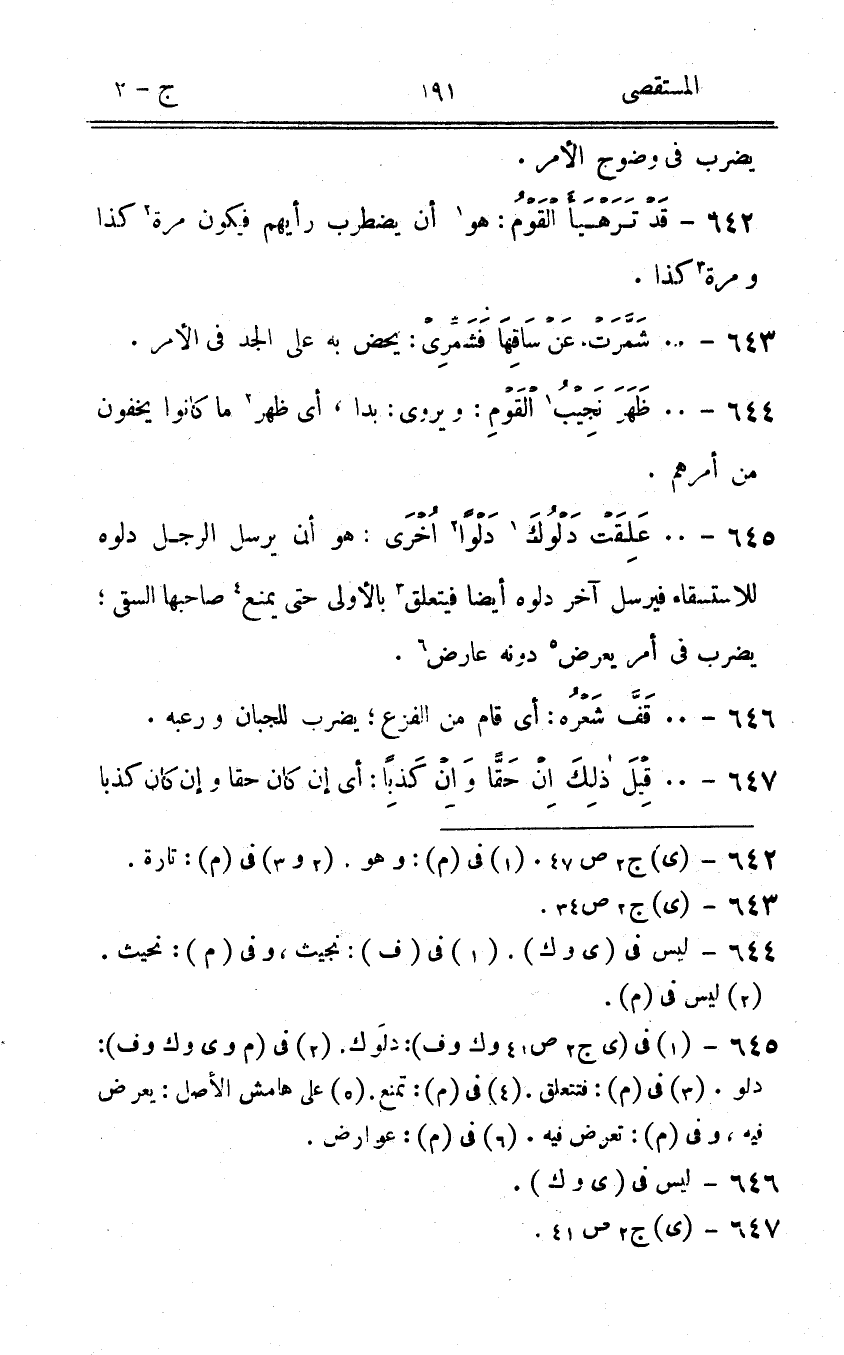 المستقصى ١٩١ ج - ٢
يضرب فى وضوح الأمر .
٦٤٢ - قَدْ تَرَهْيَأَ القَوْمُ : هو١ أن يضطرب رأيهم فيكون مرة٢ كذا
و مرة٣ كذا .
٦٤٣ - ٠٠ شَمَّرَتْ عَنْ سَاقِهَا فَشَمِّرِى : يحض به على الجد فى الأمر .
٦٤٤ - ٠٠ ظَهَرَ نَجِيبُ١ القَوْمِ : و يروى : بدا ، أى ظهر٢ ما كانوا يخفون
من أمرهم .
٦٤٥ - ٠٠ عَلِقَتْ دَلْوُكَ١ دَلْوًا٢ اُخْرَى : هو أن يرسل الرجل دلوه
للاستسقاء فيرسل آخر دلوه أيضا فيتعلق٣ بالأولى حتى يمنع٤ صاحبها السقى ؛
يضرب فى أمر يعرض٥ دونه عارض٦ .
٦٤٦ - ٠٠ قَفَّ شَعْرُه : أى قام من الفزع ؛ يضرب للجبان و رعبه .
٦٤٧ - ٠٠ قِيْلَ ذٰلِكَ اِنْ حَقًّا وَ اِنْ كَذِبًا : أى إن كان حقا و إن كان كذبا
٦٤٢ - (ى) ج٢ ص ٤٧ . (١) فى (م) : و هو . (٢ و ٣) فى (م) : تارة .
٦٤٣ - (ى) ج٢ ص ٣٤ .
٦٤٤ - ليس فى (ى و ك) . (١) فى (ف) : نجيث ، و فى (م) : نحيث .
(٢) ليس فى (م) .
٦٤٥ - (١) فى (ى ج٢ ص ٤١ و ك و ف) : دلوَك . (٢) فى (م و ى و ك و ف) :
دلو . (٣) فى (م) : فتتعلق . (٤) فى (م) : تمنع . (٥) على هامش الأصل : يعرض
فيه ، و فى (م) : تعرض فيه . (٦) فى (م) : عوارض .
٦٤٦ - ليس فى (ى و ك) .
٦٤٧ - (ى) ج٢ ص ٤١ .